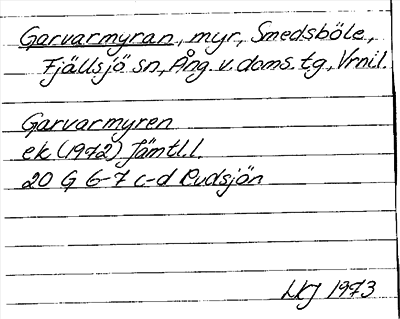 Garvarmyran, myr, Smedsböle,
Fjällsjö sn, Ång. v. doms. tg, Vrnil.
Garvarmyren
ek (1972) Jämtl. l.
20 G 6-7 c-d Rudsjön
LKJ 1973